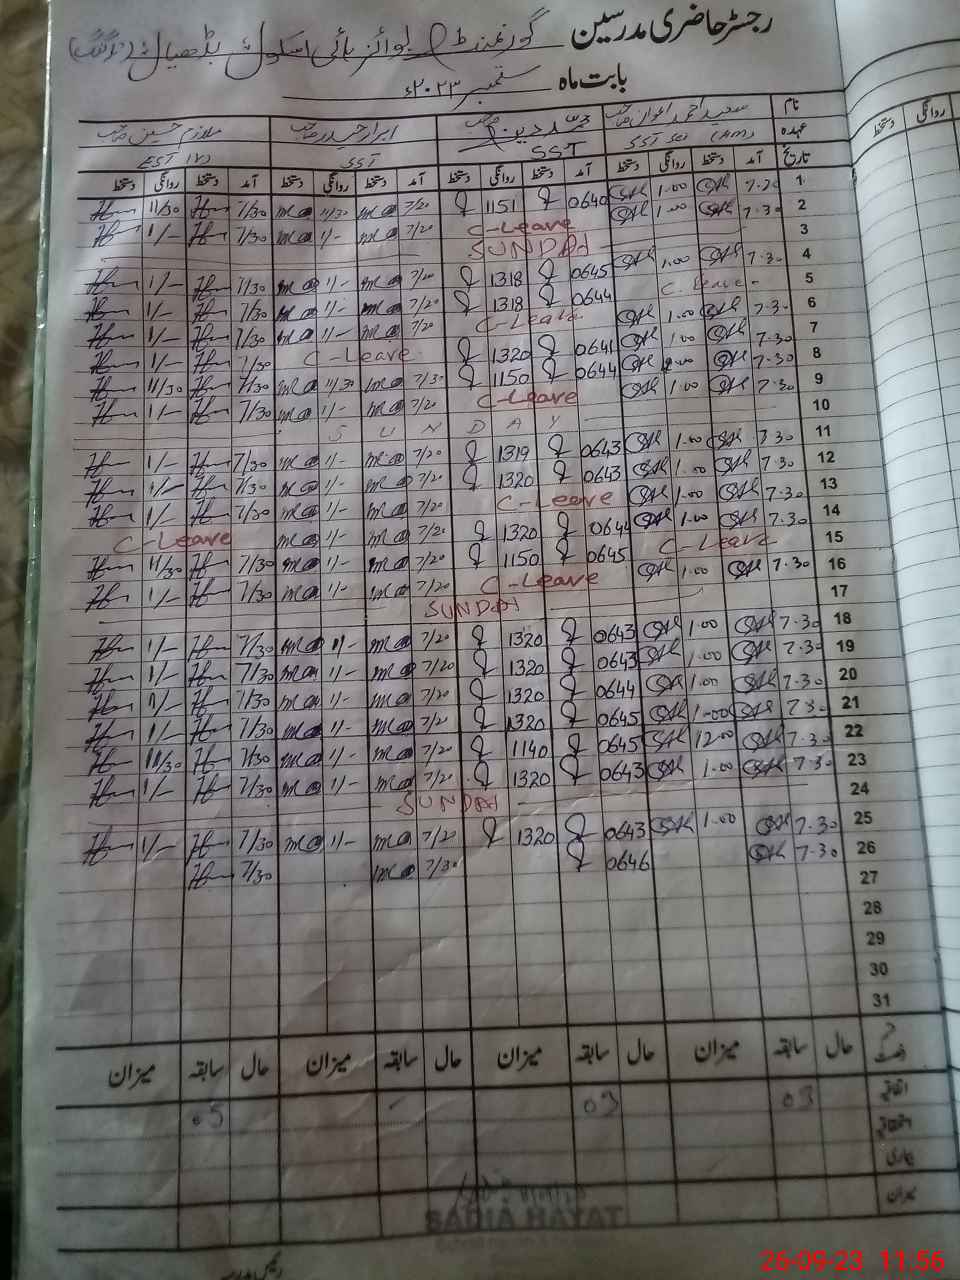 رجسٹر حاضری مدرسین گورنمنٹ بوائز ہائی اسکول بڈھیال
بابت ماہ ستمبر ۲۰۲۳ء
نام سعید احمد اعوان صاحب محمد دین صاحب ابرار حیدر صاحب ملازم حسین صاحب
عہدہ SST SST EST
تاریخ آمد دستخط روانگی دستخط آمد دستخط روانگی دستخط آمد دستخط روانگی دستخط آمد دستخط روانگی دستخط
1 7.30 1.00 0640 1151 7/20 11/30 7/30 11/30
2 7.30 1.00 C-Leave 7/20 1/- 7/30 1/-
3 SUNDAY
4 7.30 1.00 0645 1318 7/20 1/- 7/30 1/-
5 C.Leave- 0644 1318 7/20 1/- 7/30 1/-
6 7.30 1.00 C-Leave 7/20 1/- 7/30 1/-
7 7.30 1.00 0641 1320 C-Leave 7/30 1/-
8 7.30 0644 1150 7/30 11/30 7/30 11/30
9 7.30 1.00 C-Leave 7/20 1/- 7/30 1/-
10 SUNDAY
11 7.30 1.00 0643 1319 7/20 1/- 7/30 1/-
12 7.30 1.00 0643 1320 7/20 1/- 7/30 1/-
13 7.30 1.00 C-Leave 7/20 1/- 7/30 1/-
14 7.30 1.00 0644 1320 7/20 1/- C-Leave
15 C-Leave 0645 1150 7/20 1/- 7/30 11/30
16 7.30 1.00 C-Leave 7/20 1/- 7/30 1/-
17 SUNDAY
18 7.30 1.00 0643 1320 7/20 1/- 7/30 1/-
19 7.30 1.00 0643 1320 7/20 1/- 7/30 1/-
20 7.30 1.00 0644 1320 7/20 1/- 7/30 1/-
21 7.30 1.00 0645 1320 7/20 1/- 7/30 1/-
22 7.30 12.00 0645 1140 7/20 1/- 7/30 11/30
23 7.30 1.00 0643 1320 7/20 1/- 7/30 1/-
24 SUNDAY
25 7.30 1.00 0643 1320 7/20 1/- 7/30 1/-
26 7.30 0646 7/30 7/30
27
28
29
30
31
حال سابقہ میزان حال سابقہ میزان حال سابقہ میزان حال سابقہ میزان
اتفاقیہ 03 03 05
استحقاقیہ
بیماری
میزان
SADIA HAYAT
رئیس مدرسہ
روانگی دستخط
26-09-23 11:56